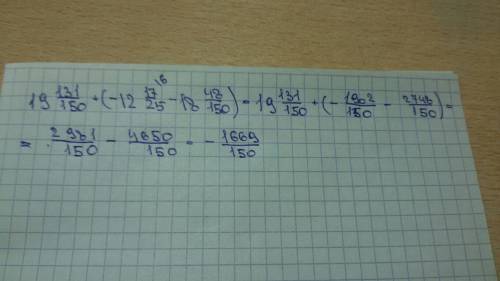 19 131/150 + (-12 17/25 \6 - 18 48/150) = 19 131/150 + (- 1902/150 - 2748/150) =
= 2981/150 - 4650/150 = - 1669/150